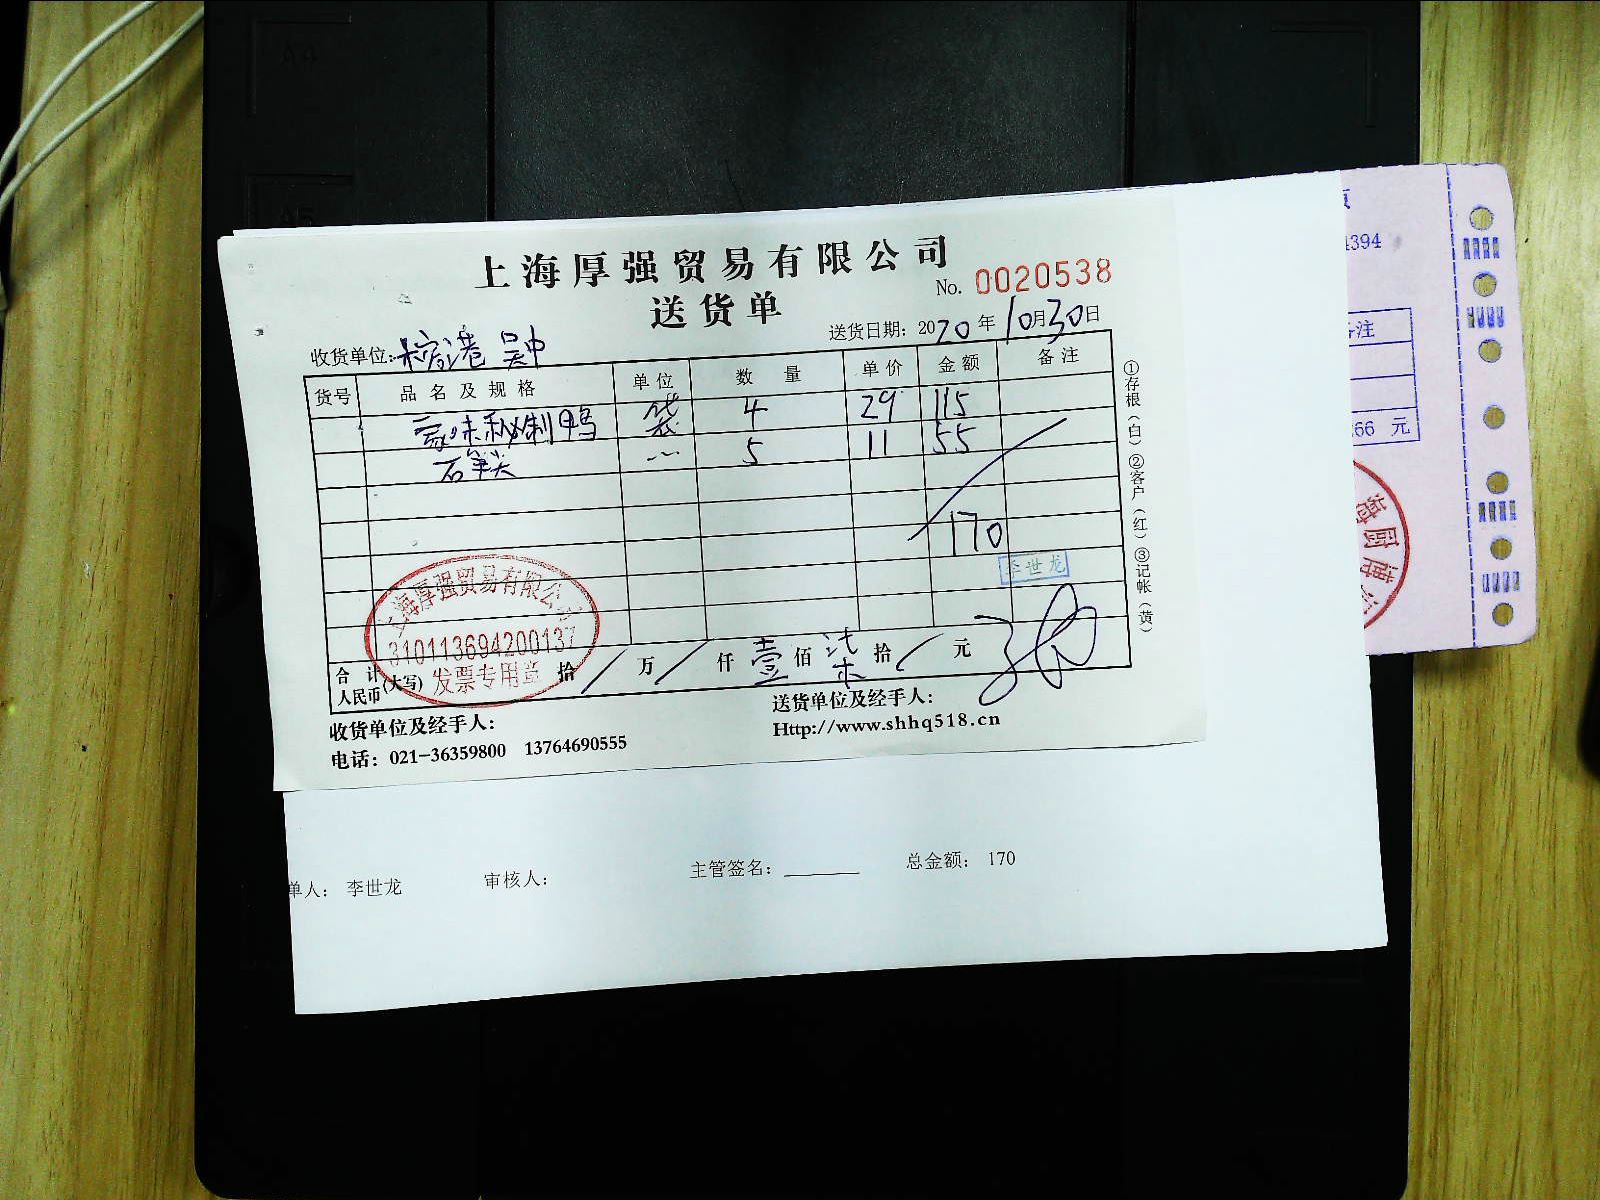 上海厚强贸易有限公司
送货单
No. 0020538
送货日期: 2020年10月30日
收货单位: 港 吴中
货号 品名及规格 单位 数量 单价 金额 备注
味秘制鸭 袋 4 29 115
石笋尖 5 11 55
170
李世龙
上海厚强贸易有限公司
310113694200137
发票专用章
合计人民币(大写) 拾 / 万 / 仟 壹 佰 柒 拾 / 元
收货单位及经手人:
送货单位及经手人:
电话: 021-36359800 13764690555
Http://www.shhq518.cn
①存根(白)②客户(红)③记帐(黄)
单人: 李世龙 审核人: 主管签名: 总金额: 170
页
4394
备注
.66 元